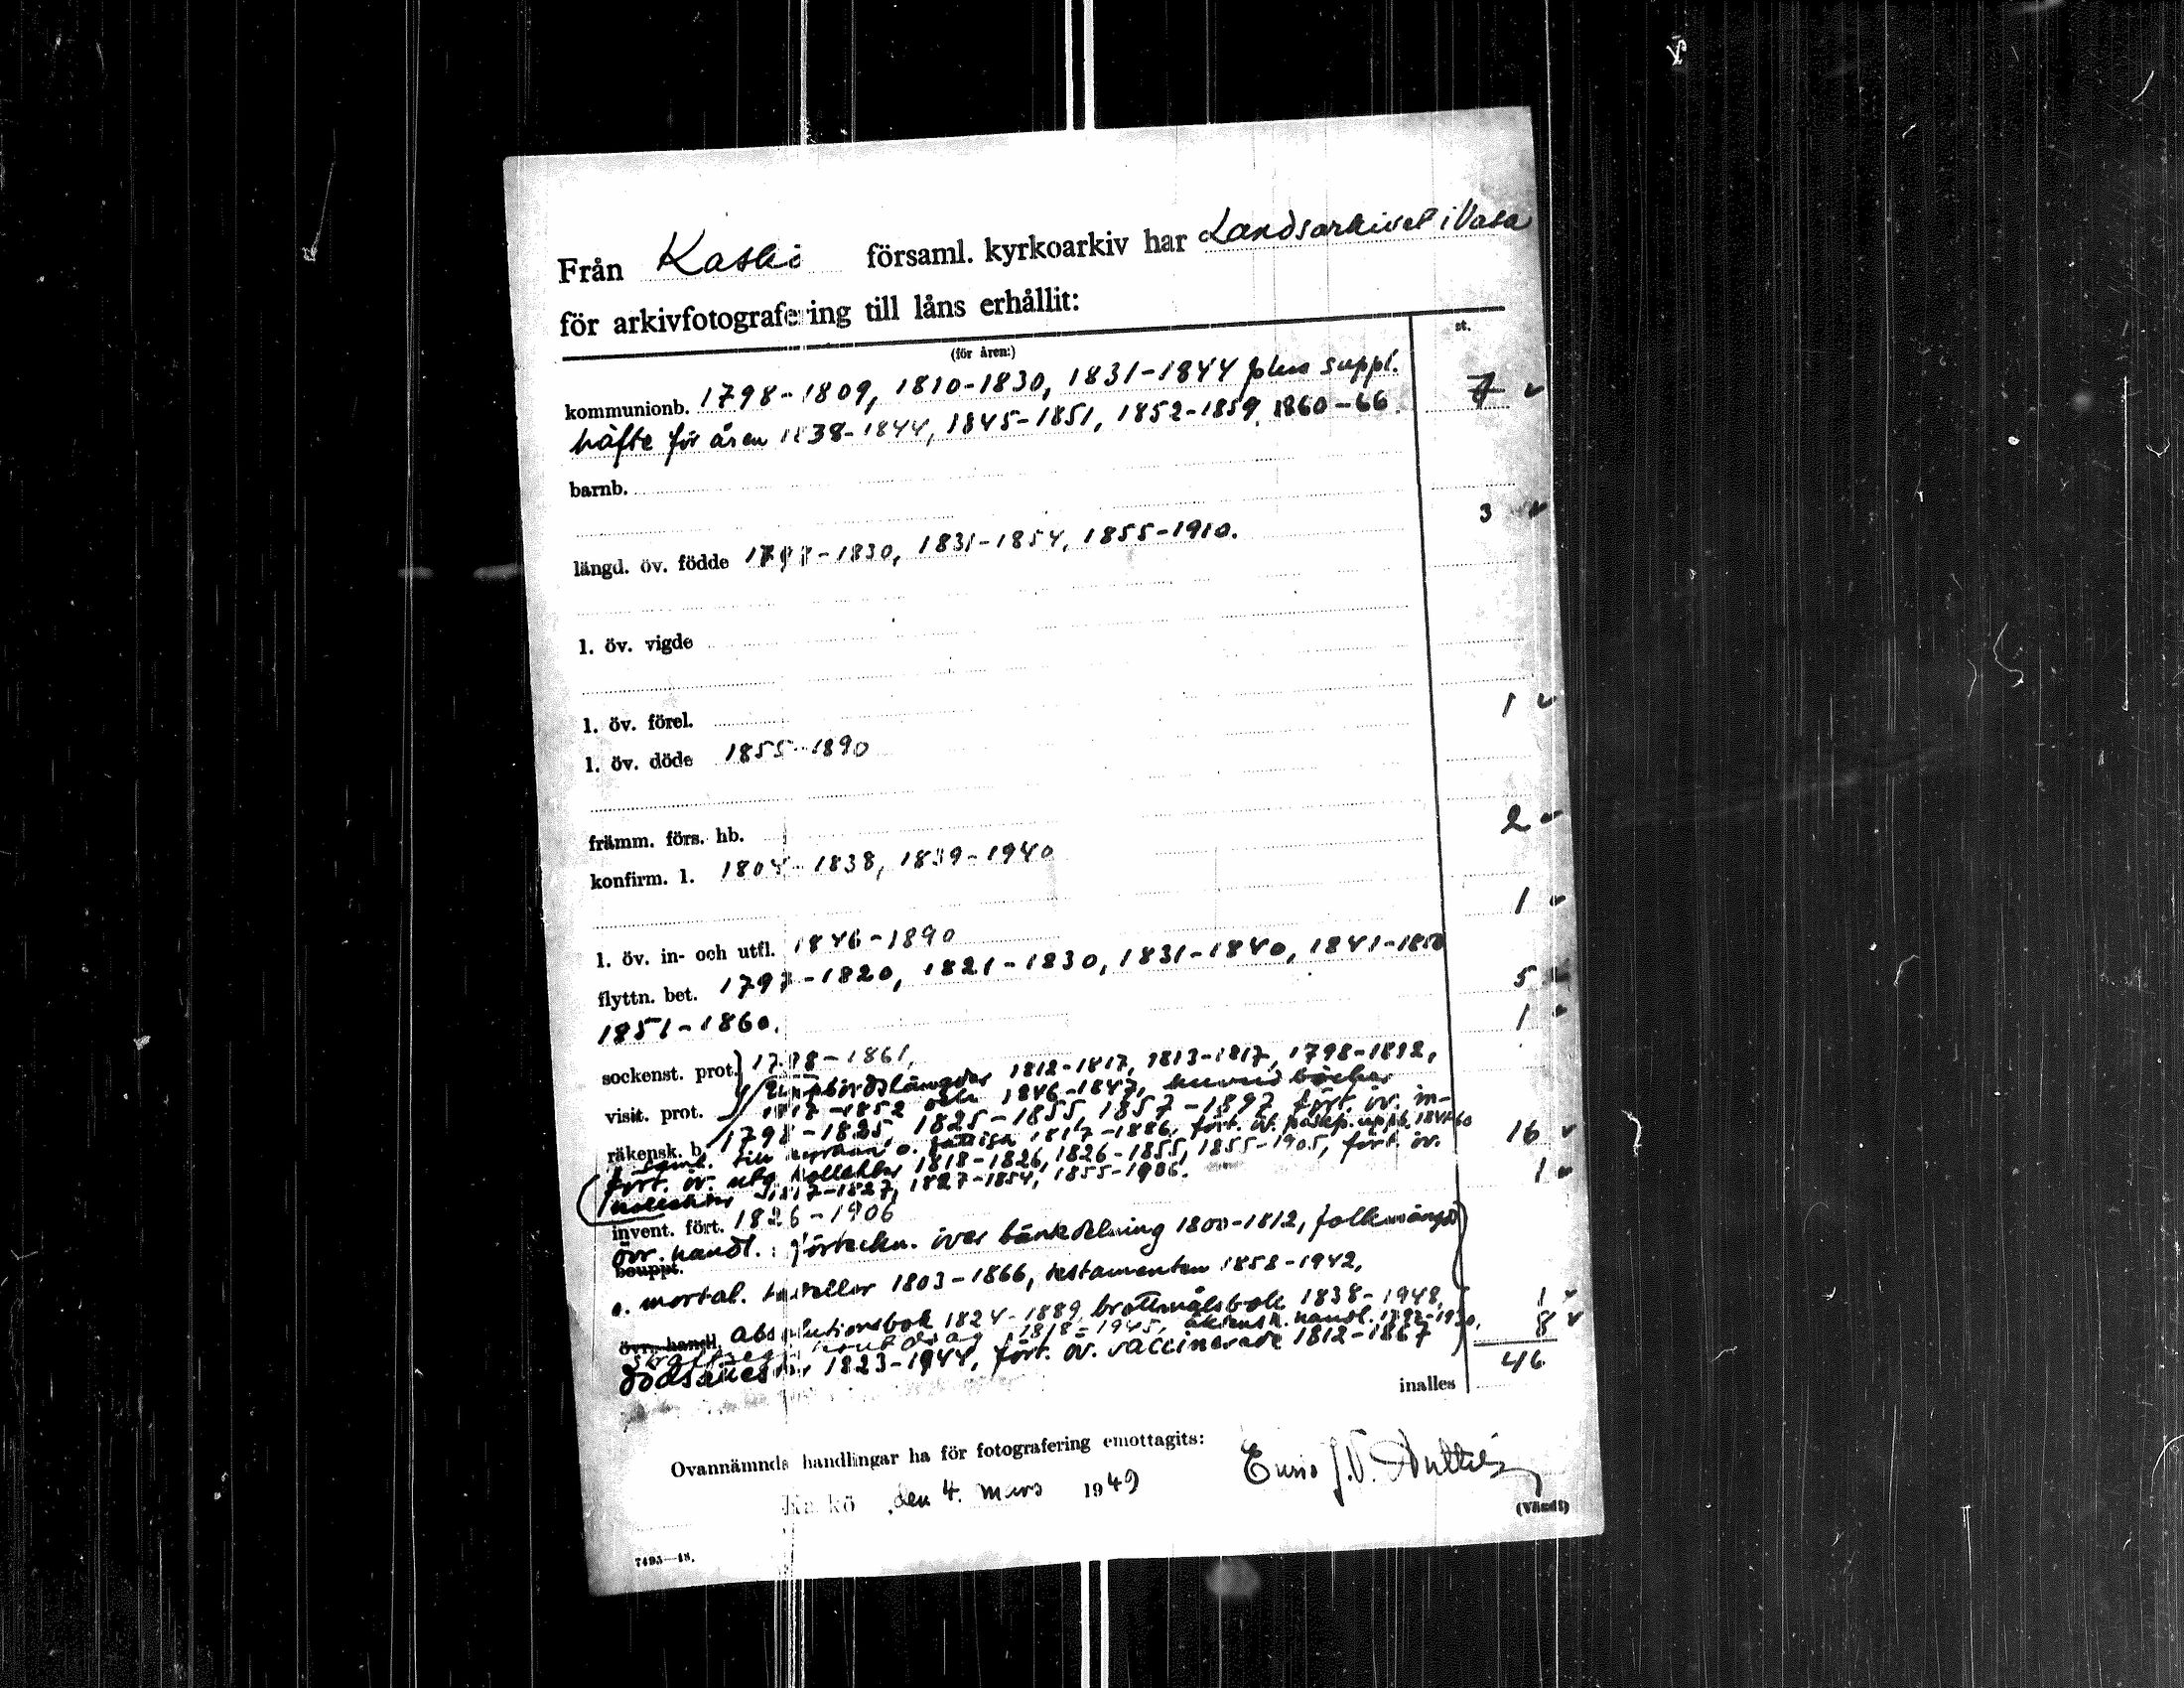 Från Kaskö församl. kyrkoarkiv har Landsarkivet i Vasa
för arkivfotografering till låns erhållit:
(för åren:) st.
kommunionb. 1798-1809, 1810-1830, 1831-1844 plus suppl.
häfte för åren 1838-1844, 1845-1851, 1852-1859, 1860-66. 7
barnb.
längd. öv. födde 1798-1830, 1831-1854, 1855-1910. 3
l. öv. vigde
l. öv. förel.
l. öv. döde 1855-1890 1
främm. förs. hb.
konfirm. l. 1804-1838, 1839-1940 2
l. öv. in- och utfl. 1846-1890 1
flyttn. bet. 1797-1820, 1821-1830, 1831-1840, 1841-1850
1851-1860. 5
sockenst. prot. 1798-1861, 1
visit. prot. Uppbördslängder 1812-1817, 1813-1817, 1798-1812,
1817-1852 och 1846-1847, huvudböcker
räkensk. b. 1798-1825, 1825-1855, 1857-1897 fört. öv. in-
saml. till kyrkan o. fattiga 1817-1886, fört. öv. 1841-60 16
fört. öv. utg. kollekter 1818-1826, 1826-1855, 1855-1905, fört. öv.
kollekter 1817-1827, 1827-1854, 1855-1906.
invent. fört. 1826-1906 1
övr. handl.: förteckn. över bänkdelning 1800-1812, folkmängds
bouppt.
o. mortal. tabeller 1803-1866, testamenten 1858-1942,
övr. handl. Absolutionsbok 1824-1889, brottmålsbok 1838-1948, 1
1818-1945, handl. 1792-1930, 8
dödsattester 1823-1944, fört. öv. vaccinerade 1812-1867
inalles 46
Ovannämnda handlingar ha för fotografering emottagits:
Kaskö den 4. mars 1949
(Vänd!)
7493—48.